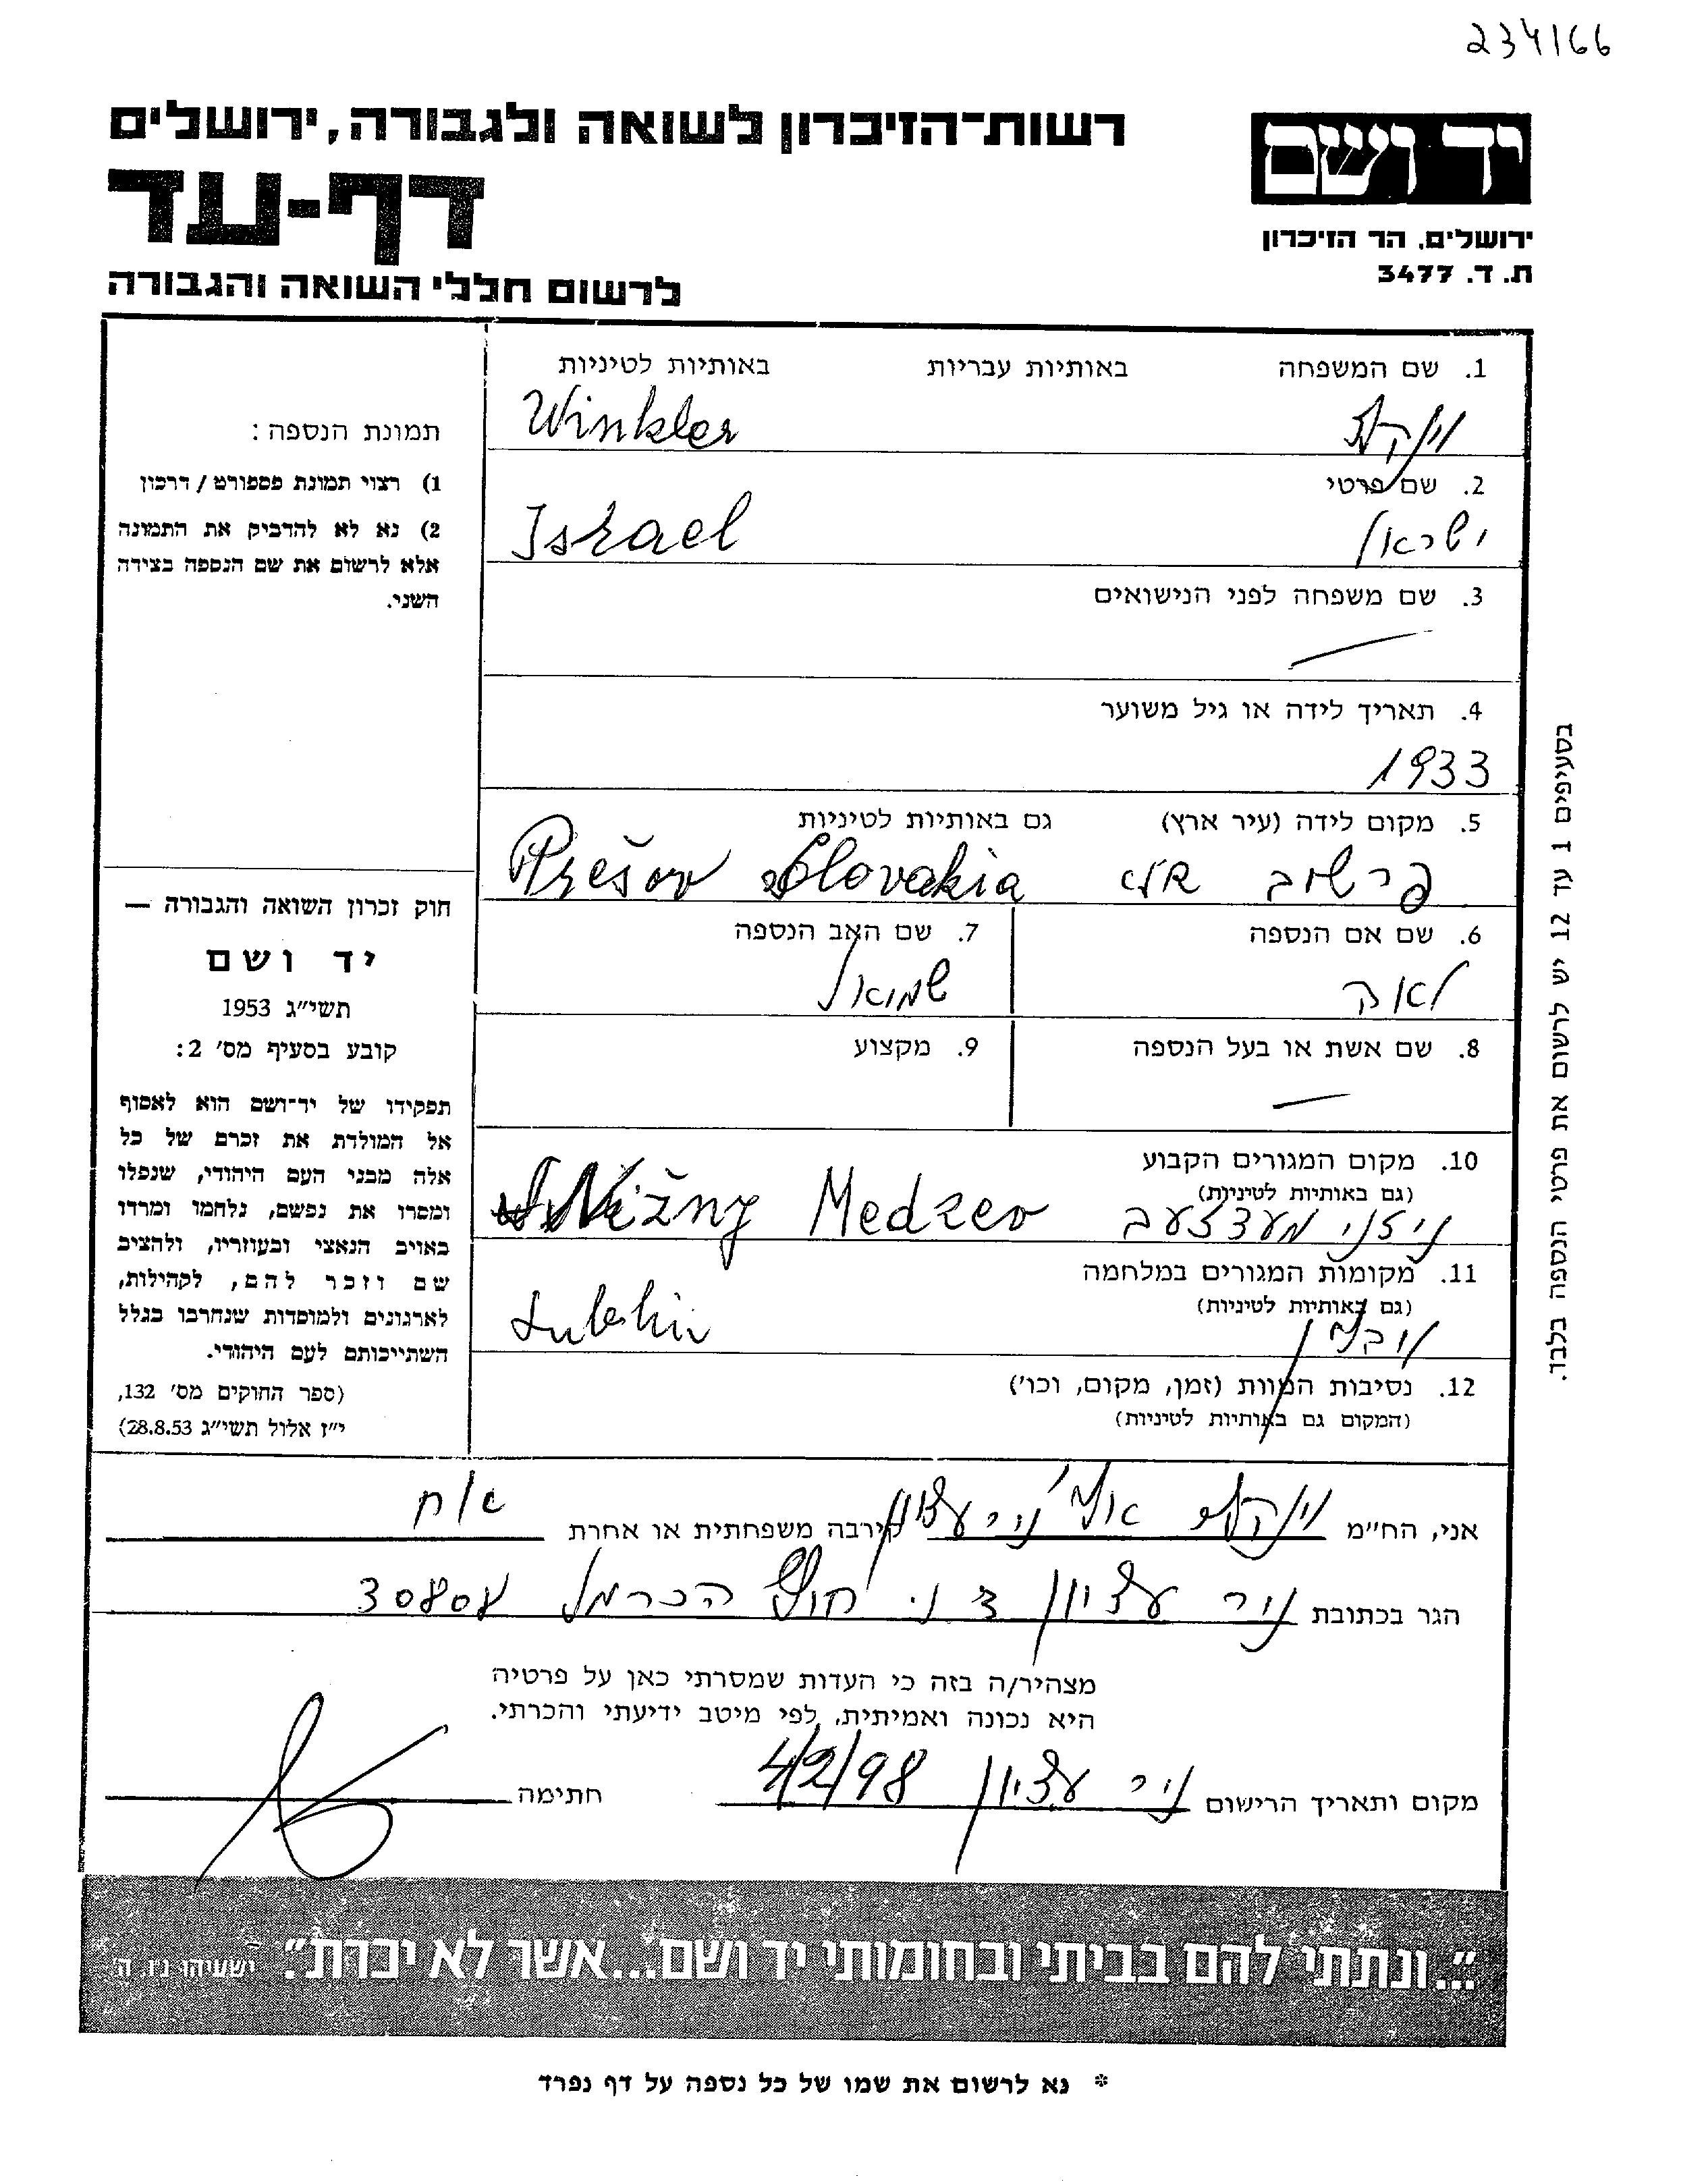 234166
יד ושם
רשות־הזיכרון לשואה ולגבורה, ירושלים
דף-עד
ירושלים, הר הזיכרון
ת. ד. 3477
לרשום חללי השואה והגבורה
1. שם המשפחה באותיות עבריות באותיות לטיניות
Winkler
2. שם פרטי
ישראל Israel
3. שם משפחה לפני הנישואים
—
4. תאריך לידה או גיל משוער
1933
5. מקום לידה (עיר ארץ) גם באותיות לטיניות
פרשוב Prešov Slovakia
6. שם אם הנספה 7. שם האב הנספה
לאה שמואל
8. שם אשת או בעל הנספה 9. מקצוע
—
10. מקום המגורים הקבוע
(גם באותיות לטיניות)
ניזני מעדזעב Nižny Medzev
11. מקומות המגורים במלחמה
(גם באותיות לטיניות)
לובלין Lublin
12. נסיבות המוות (זמן, מקום, וכו')
(המקום גם באותיות לטיניות)
תמונת הנספה:
1) רצוי תמונת פספורט / דרכון
2) נא לא להדביק את התמונה
אלא לרשום את שם הנספה בצידה
השני.
חוק זכרון השואה והגבורה —
יד ושם
תשי"ג 1953
קובע בסעיף מס' 2:
תפקידו של יד־ושם הוא לאסוף
אל המולדת את זכרם של כל
אלה מבני העם היהודי, שנפלו
ומסרו את נפשם, נלחמו ומרדו
באויב הנאצי ובעוזריו, ולהציב
שם וזכר להם, לקהילות,
לארגונים ולמוסדות שנחרבו בגלל
השתייכותם לעם היהודי.
(ספר החוקים מס' 132,
י"ז אלול תשי"ג 28.8.53)
בסעיפים 1 עד 12 יש לרשום את פרטי הנספה בלבד.
אני, הח"מ וינקלר ניר עציון קירבה משפחתית או אחרת אח
הגר בכתובת ניר עציון ד.נ. חוף הכרמל 30808
מצהיר/ה בזה כי העדות שמסרתי כאן על פרטיה
היא נכונה ואמיתית, לפי מיטב ידיעתי והכרתי.
מקום ותאריך הרישום ניר עציון 4/2/98 חתימה
"...ונתתי להם בביתי ובחומותי יד ושם...אשר לא יכרת". ישעיהו נ"ו, ה'
* נא לרשום את שמו של כל נספה על דף נפרד